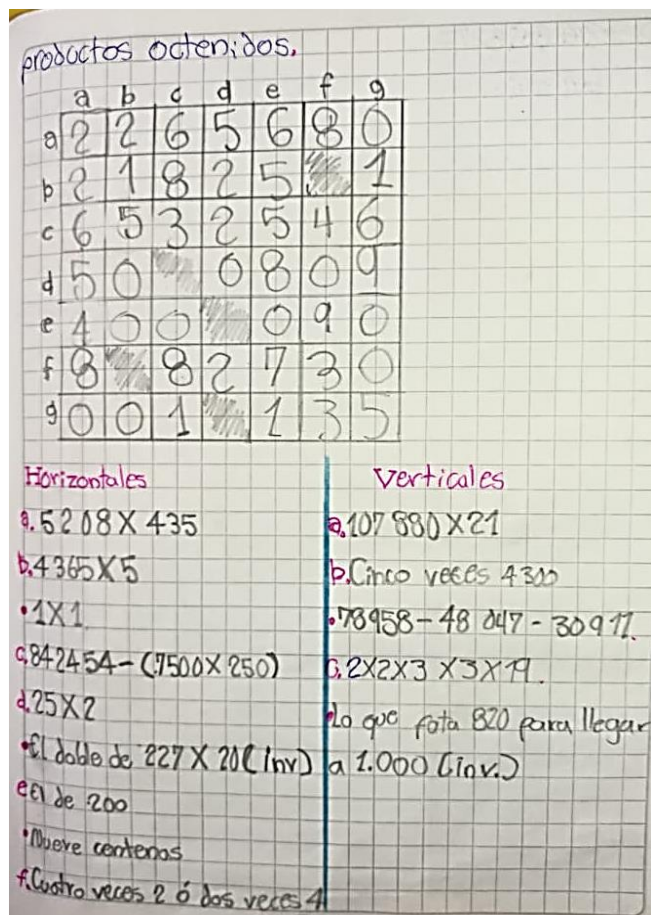 productos octenidos.
a b c d e f g
a 2 2 6 5 6 8 0
b 2 1 8 2 5 1
c 6 5 3 2 5 4 6
d 5 0 0 8 0 9
e 4 0 0 0 9 0
f 8 8 2 7 3 0
g 0 0 1 1 3 5
Horizontales
a. 5208 X 435
b. 4365 X 5
• 1X1
c. 842454 - (7500 X 250)
d. 25 X 2
• El doble de 227 X 20 (inv)
e El de 200
• Nueve centenas
f. Cuatro veces 2 ó dos veces 4
Verticales
a. 107 880 X 21
b. Cinco veces 4300
• 78958 - 48 047 - 30911.
c. 2X2X3 X3X19.
• lo que fata 820 para llegar
a 1.000 (inv.)